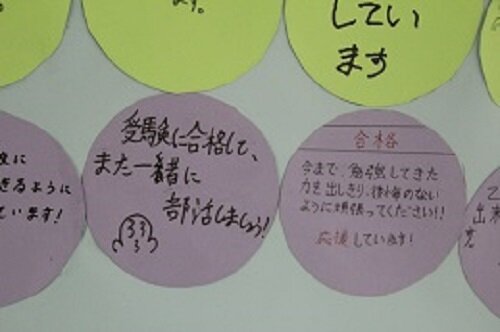 ます。
してい
ます
うに
きるように
ています!
受験に合格して、
また一緒に
部活しましょう!
合格
今まで、勉強してきた
力を出しきり、後悔のない
ように頑張ってください!!
応援しています!
出来